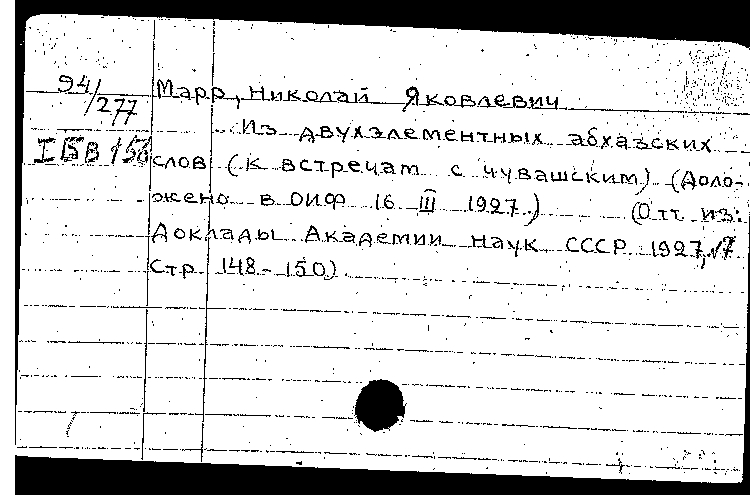 94/277 Марр, Николай Яковлевич
Из двухэлементных абхазских
IБВ 156 слов (к встречам с чувашским) (Доло-
жено в ОИФ 16 III 1927.) (Отт. из:
Доклады Академии наук СССР 1927, №7
стр. 148-150)